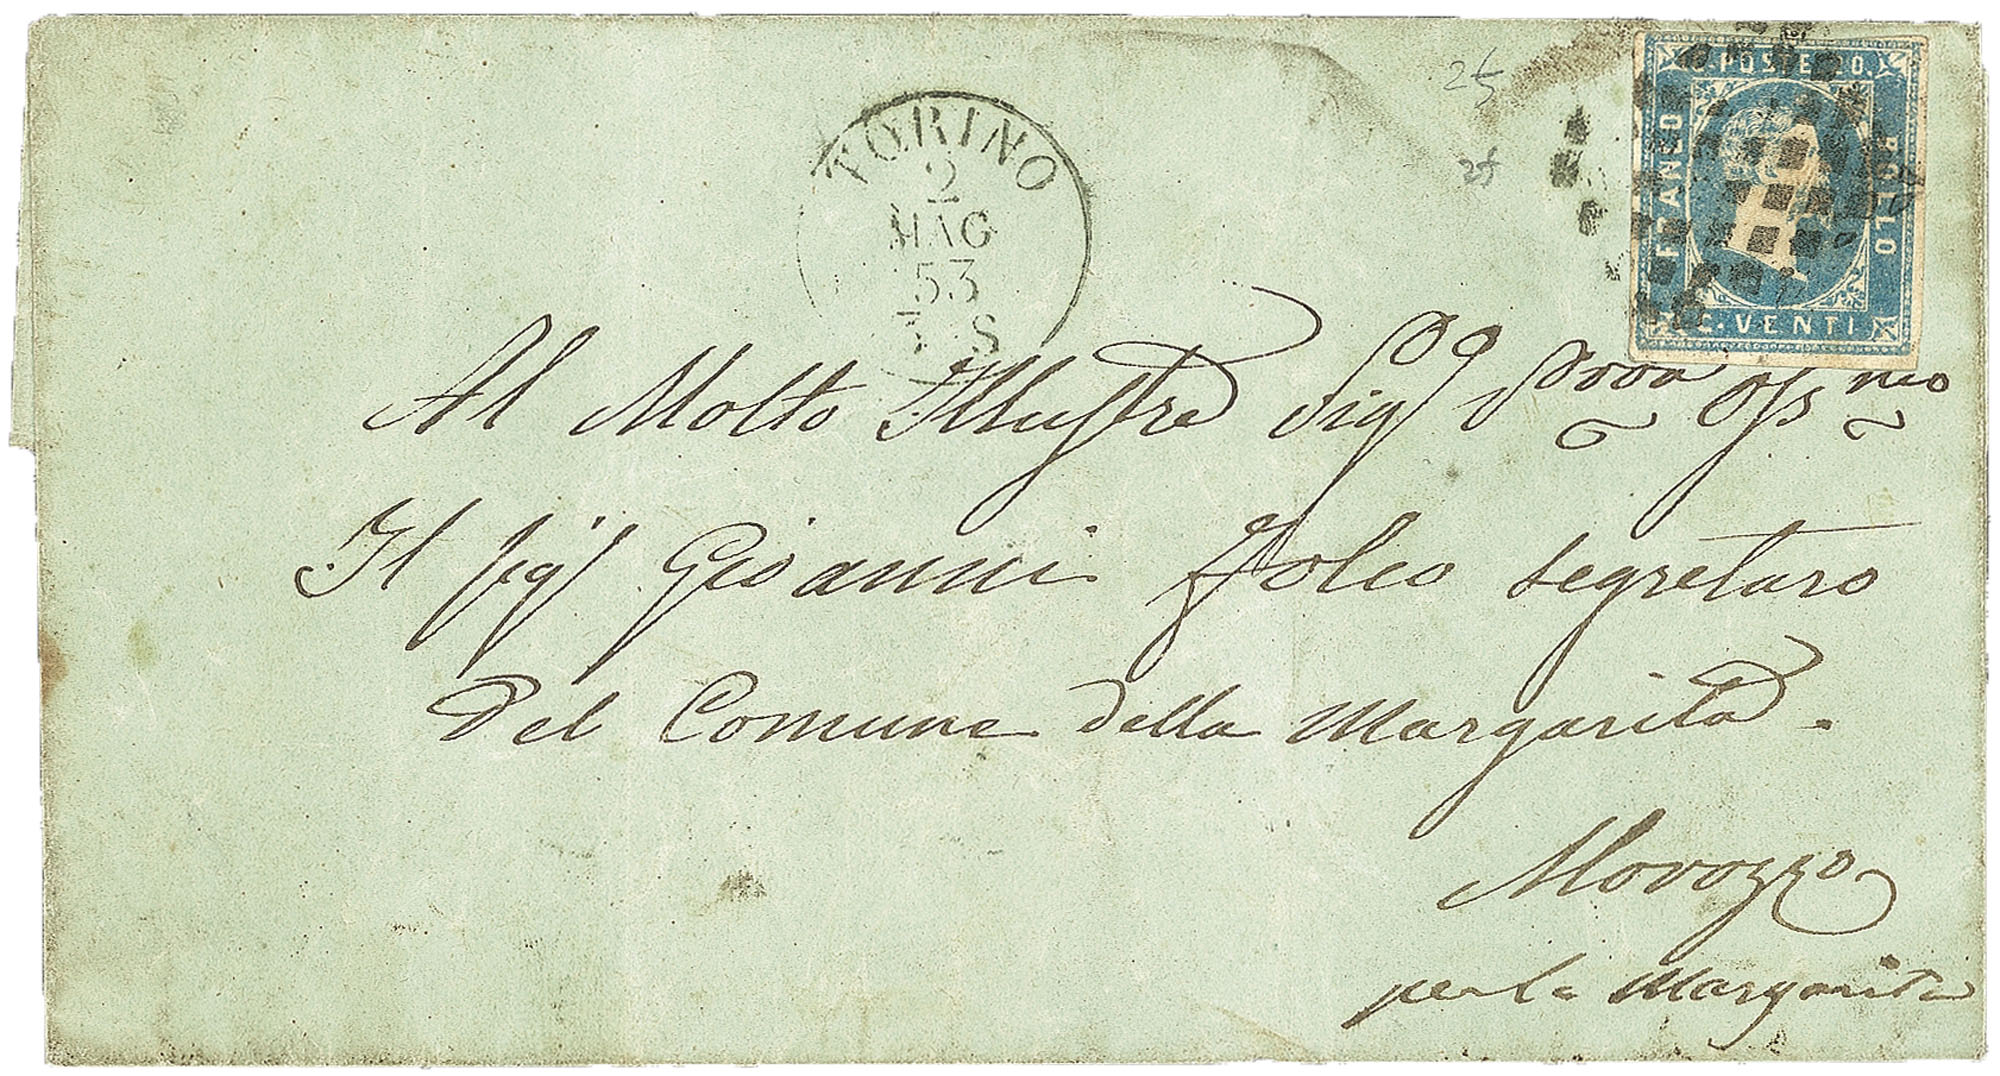 C. POSTE 20.
FRANCO
BOLLO
C. VENTI
25
25
TORINO
2
MAG
53
3 S
Al Molto Illustre Sig.r Pron Oss.mo
Il sig.r Gioanni Folco segretaro
del Comune della Margarita.
Morozzo
per la Margarita